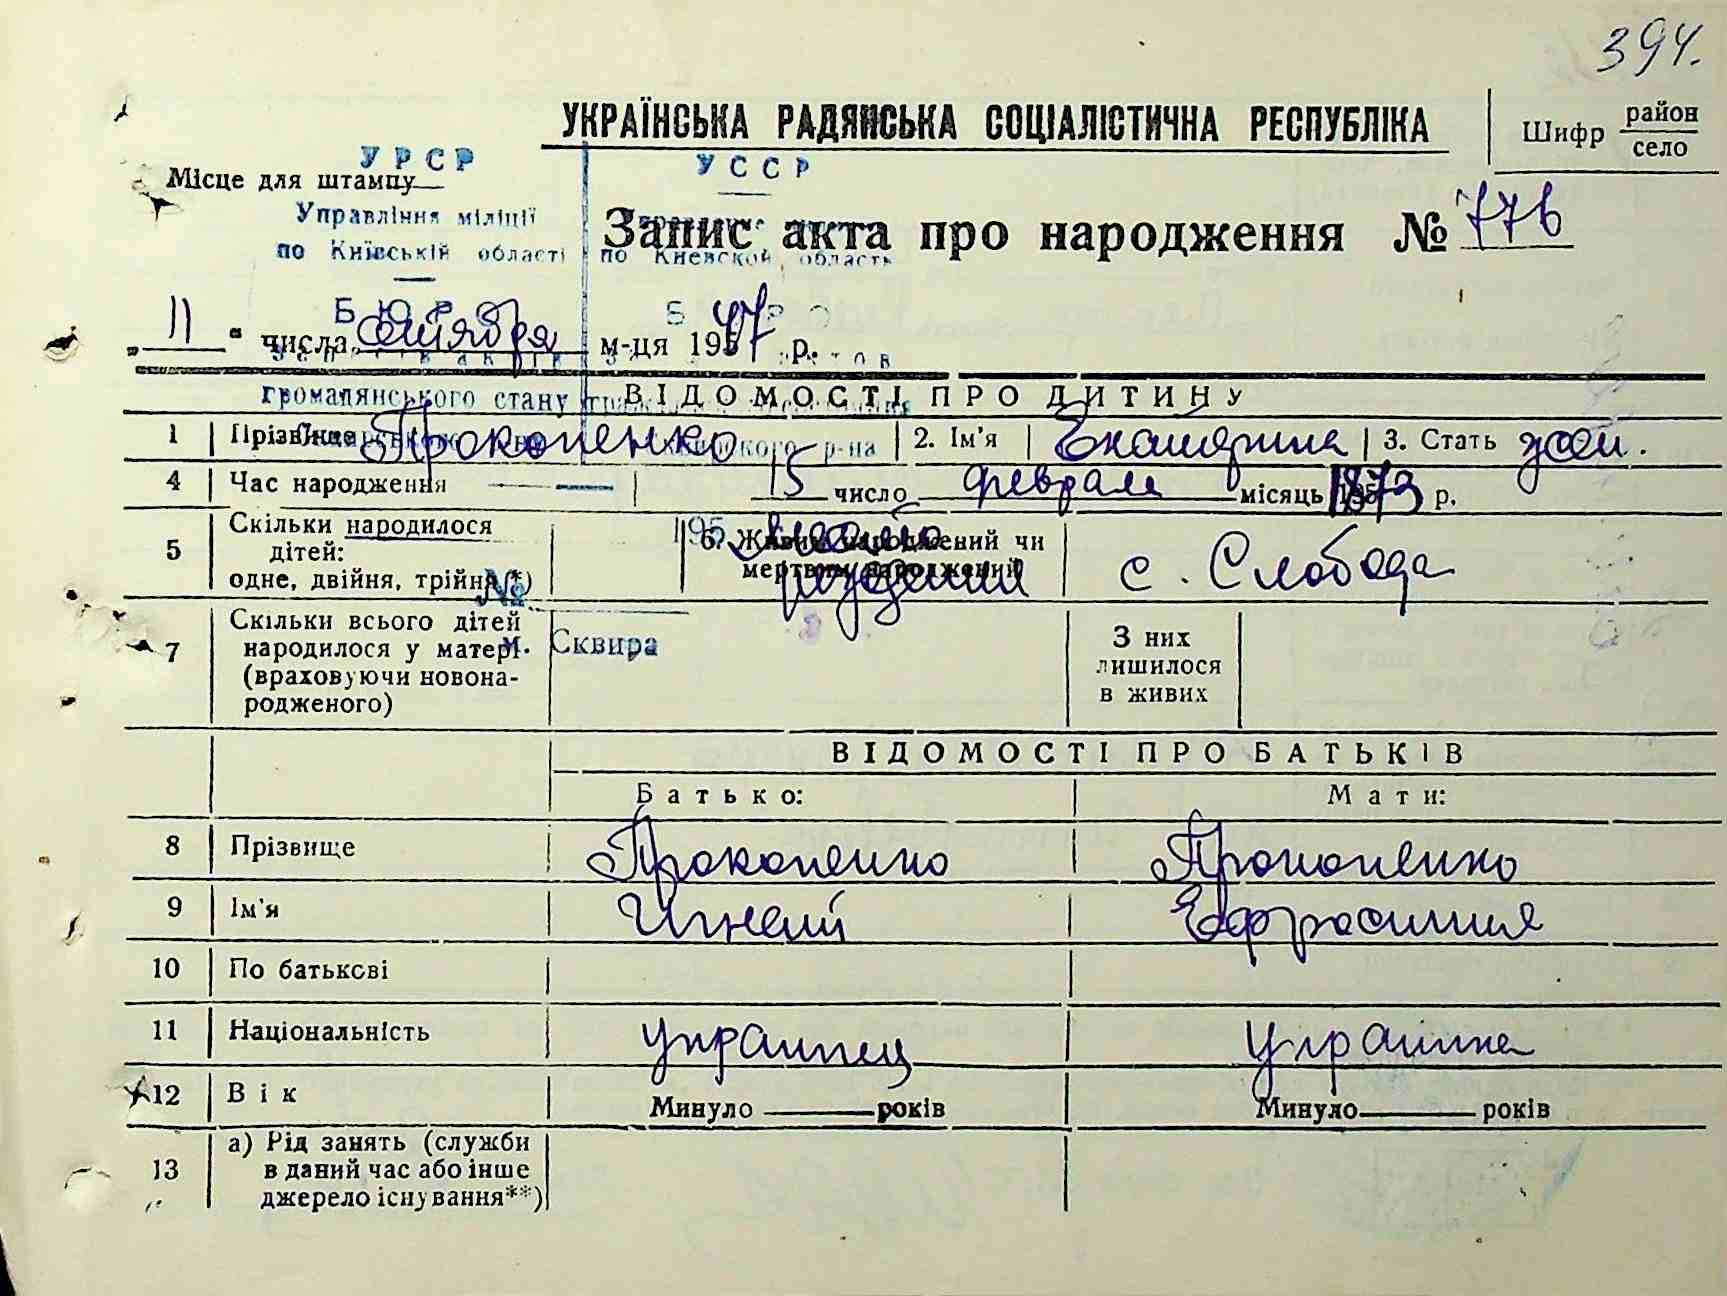 394.
УКРАЇНСЬКА РАДЯНСЬКА СОЦІАЛІСТИЧНА РЕСПУБЛІКА
Шифр район
село
УРСР
УССР
Місце для штампу
Управління міліції
по Київській області
по Киевской область
Запис акта про народження № 776
БЮРО
„11“ числа октября м-ця 1947 р.
громадянського стану
ВІДОМОСТІ ПРО ДИТИНУ
1 Прізвище Прокопенко 2. Ім'я Екатерина 3. Стать жен.
р-на
4 Час народження 15 число февраля місяць 1873 р.
5 Скільки народилося дітей: одне, двійня, трійня*)
195
6. Живим народжений чи мертвим народжений
место рождения
с. Слобода
№
7 Скільки всього дітей народилося у матері (враховуючи новонародженого)
м. Сквира
З них лишилося в живих
ВІДОМОСТІ ПРО БАТЬКІВ
Батько: Мати:
8 Прізвище Прокопенко Прокопенко
9 Ім'я Игнат Ефросиния
10 По батькові
11 Національність украинец украинка
12 Вік Минуло років Минуло років
13 а) Рід занять (служби в даний час або інше джерело існування**)